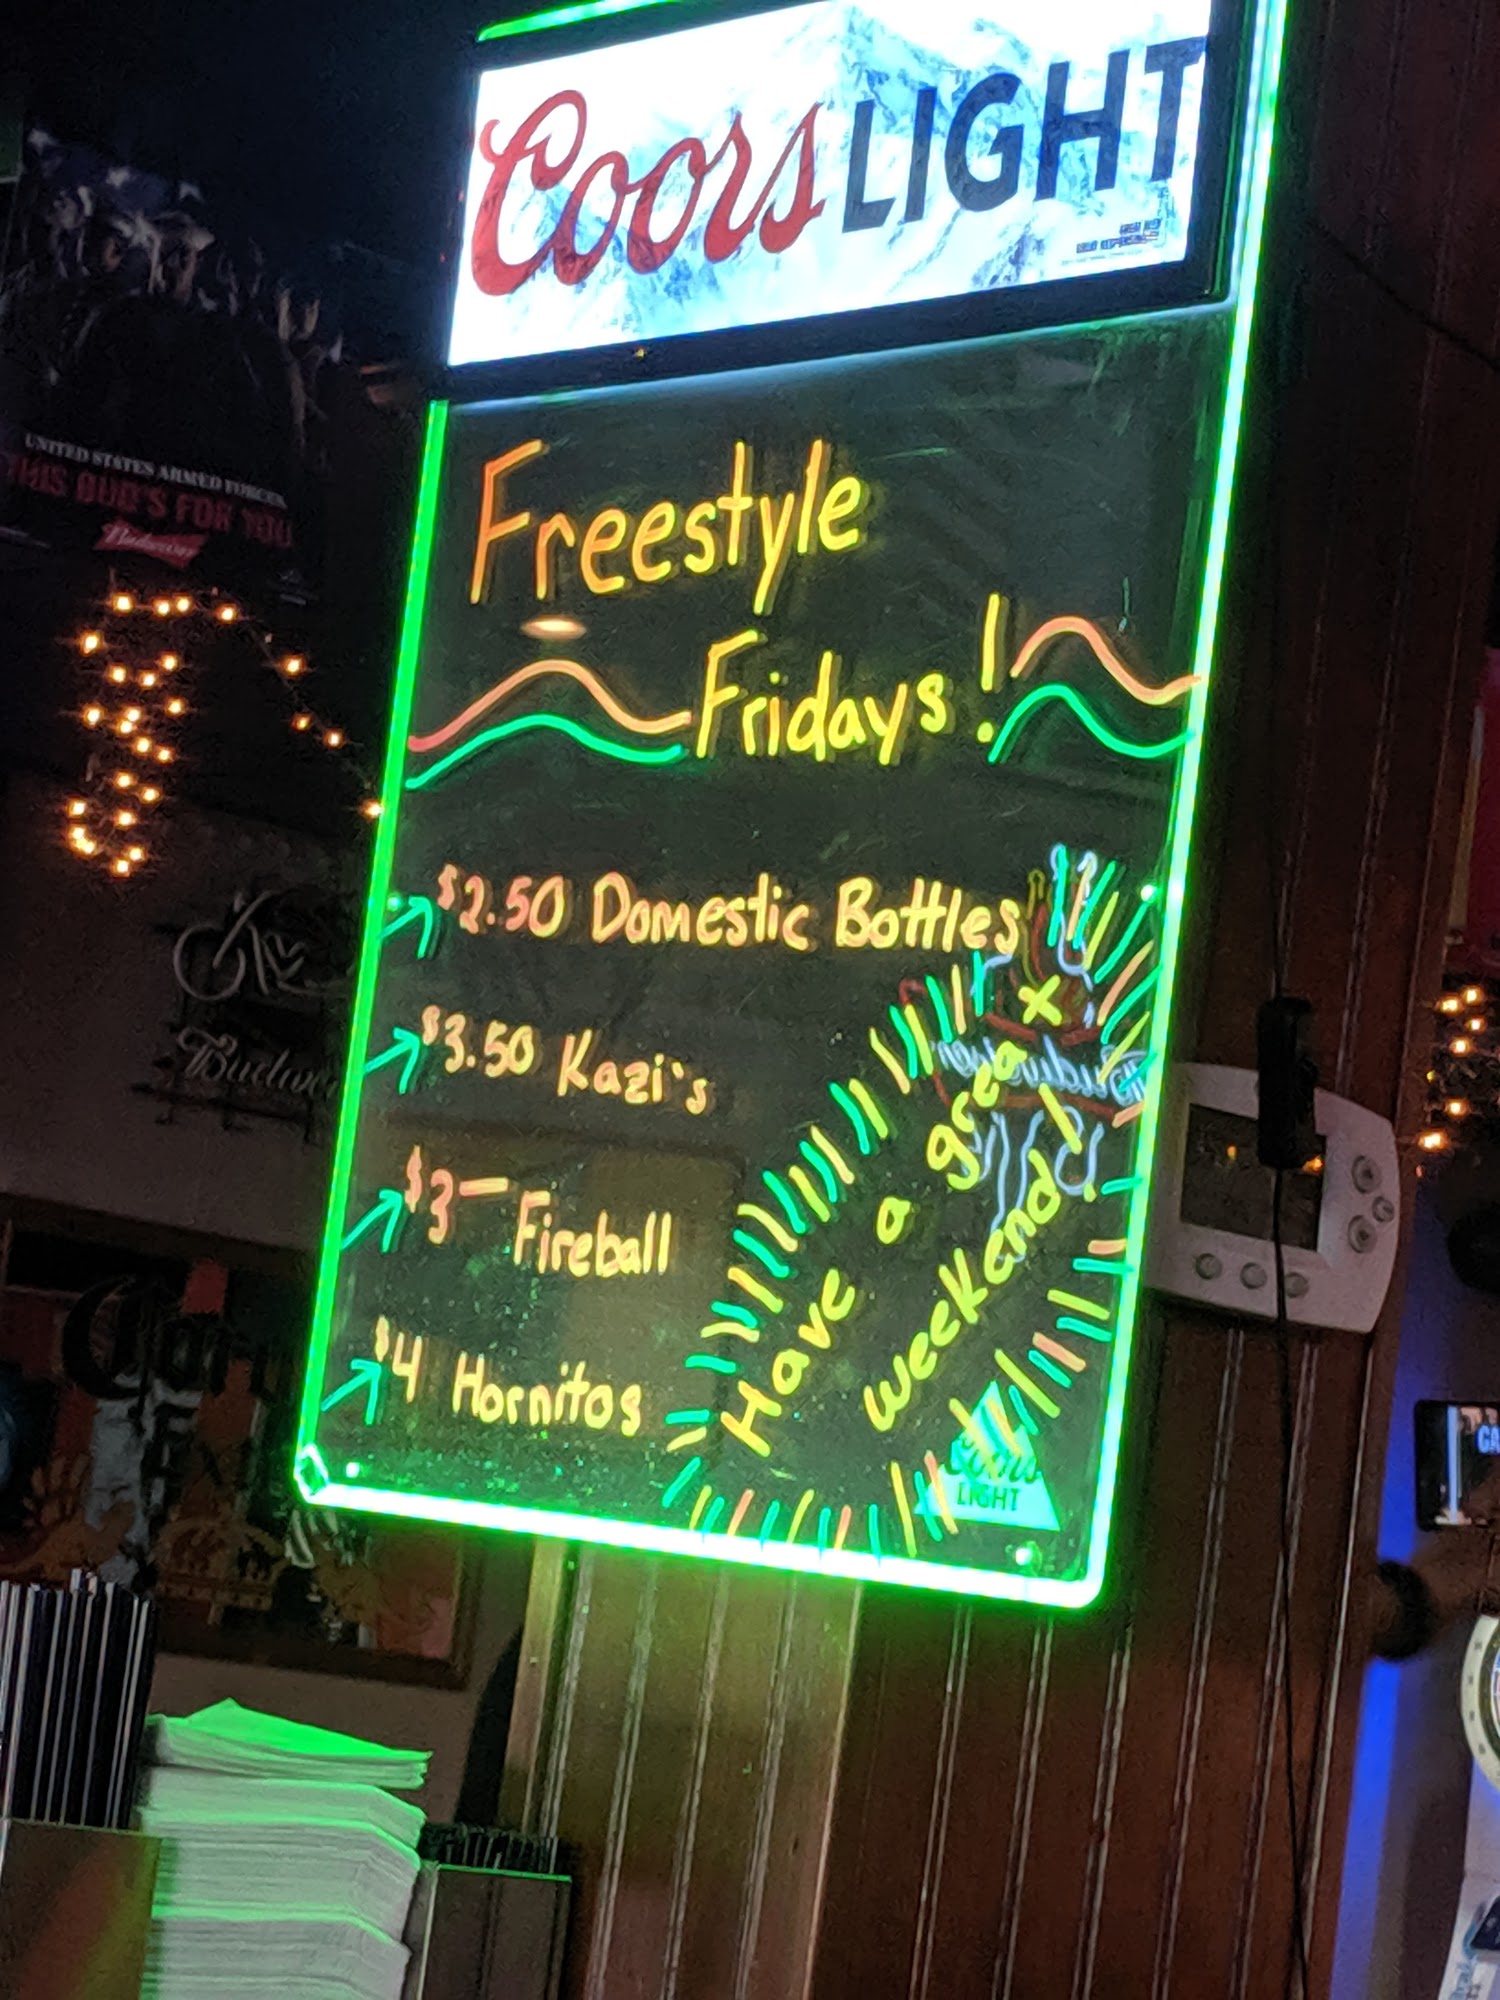 Coors LIGHT
Freestyle
Fridays!
$2.50 Domestic Bottles
$3.50 Kazi's
$3— Fireball
$4 Hornitos
Have a great
weekend!
Coors
LIGHT
UNITED STATES ARMED FORCES
THIS BUD'S FOR YOU
Budweiser
Budweiser